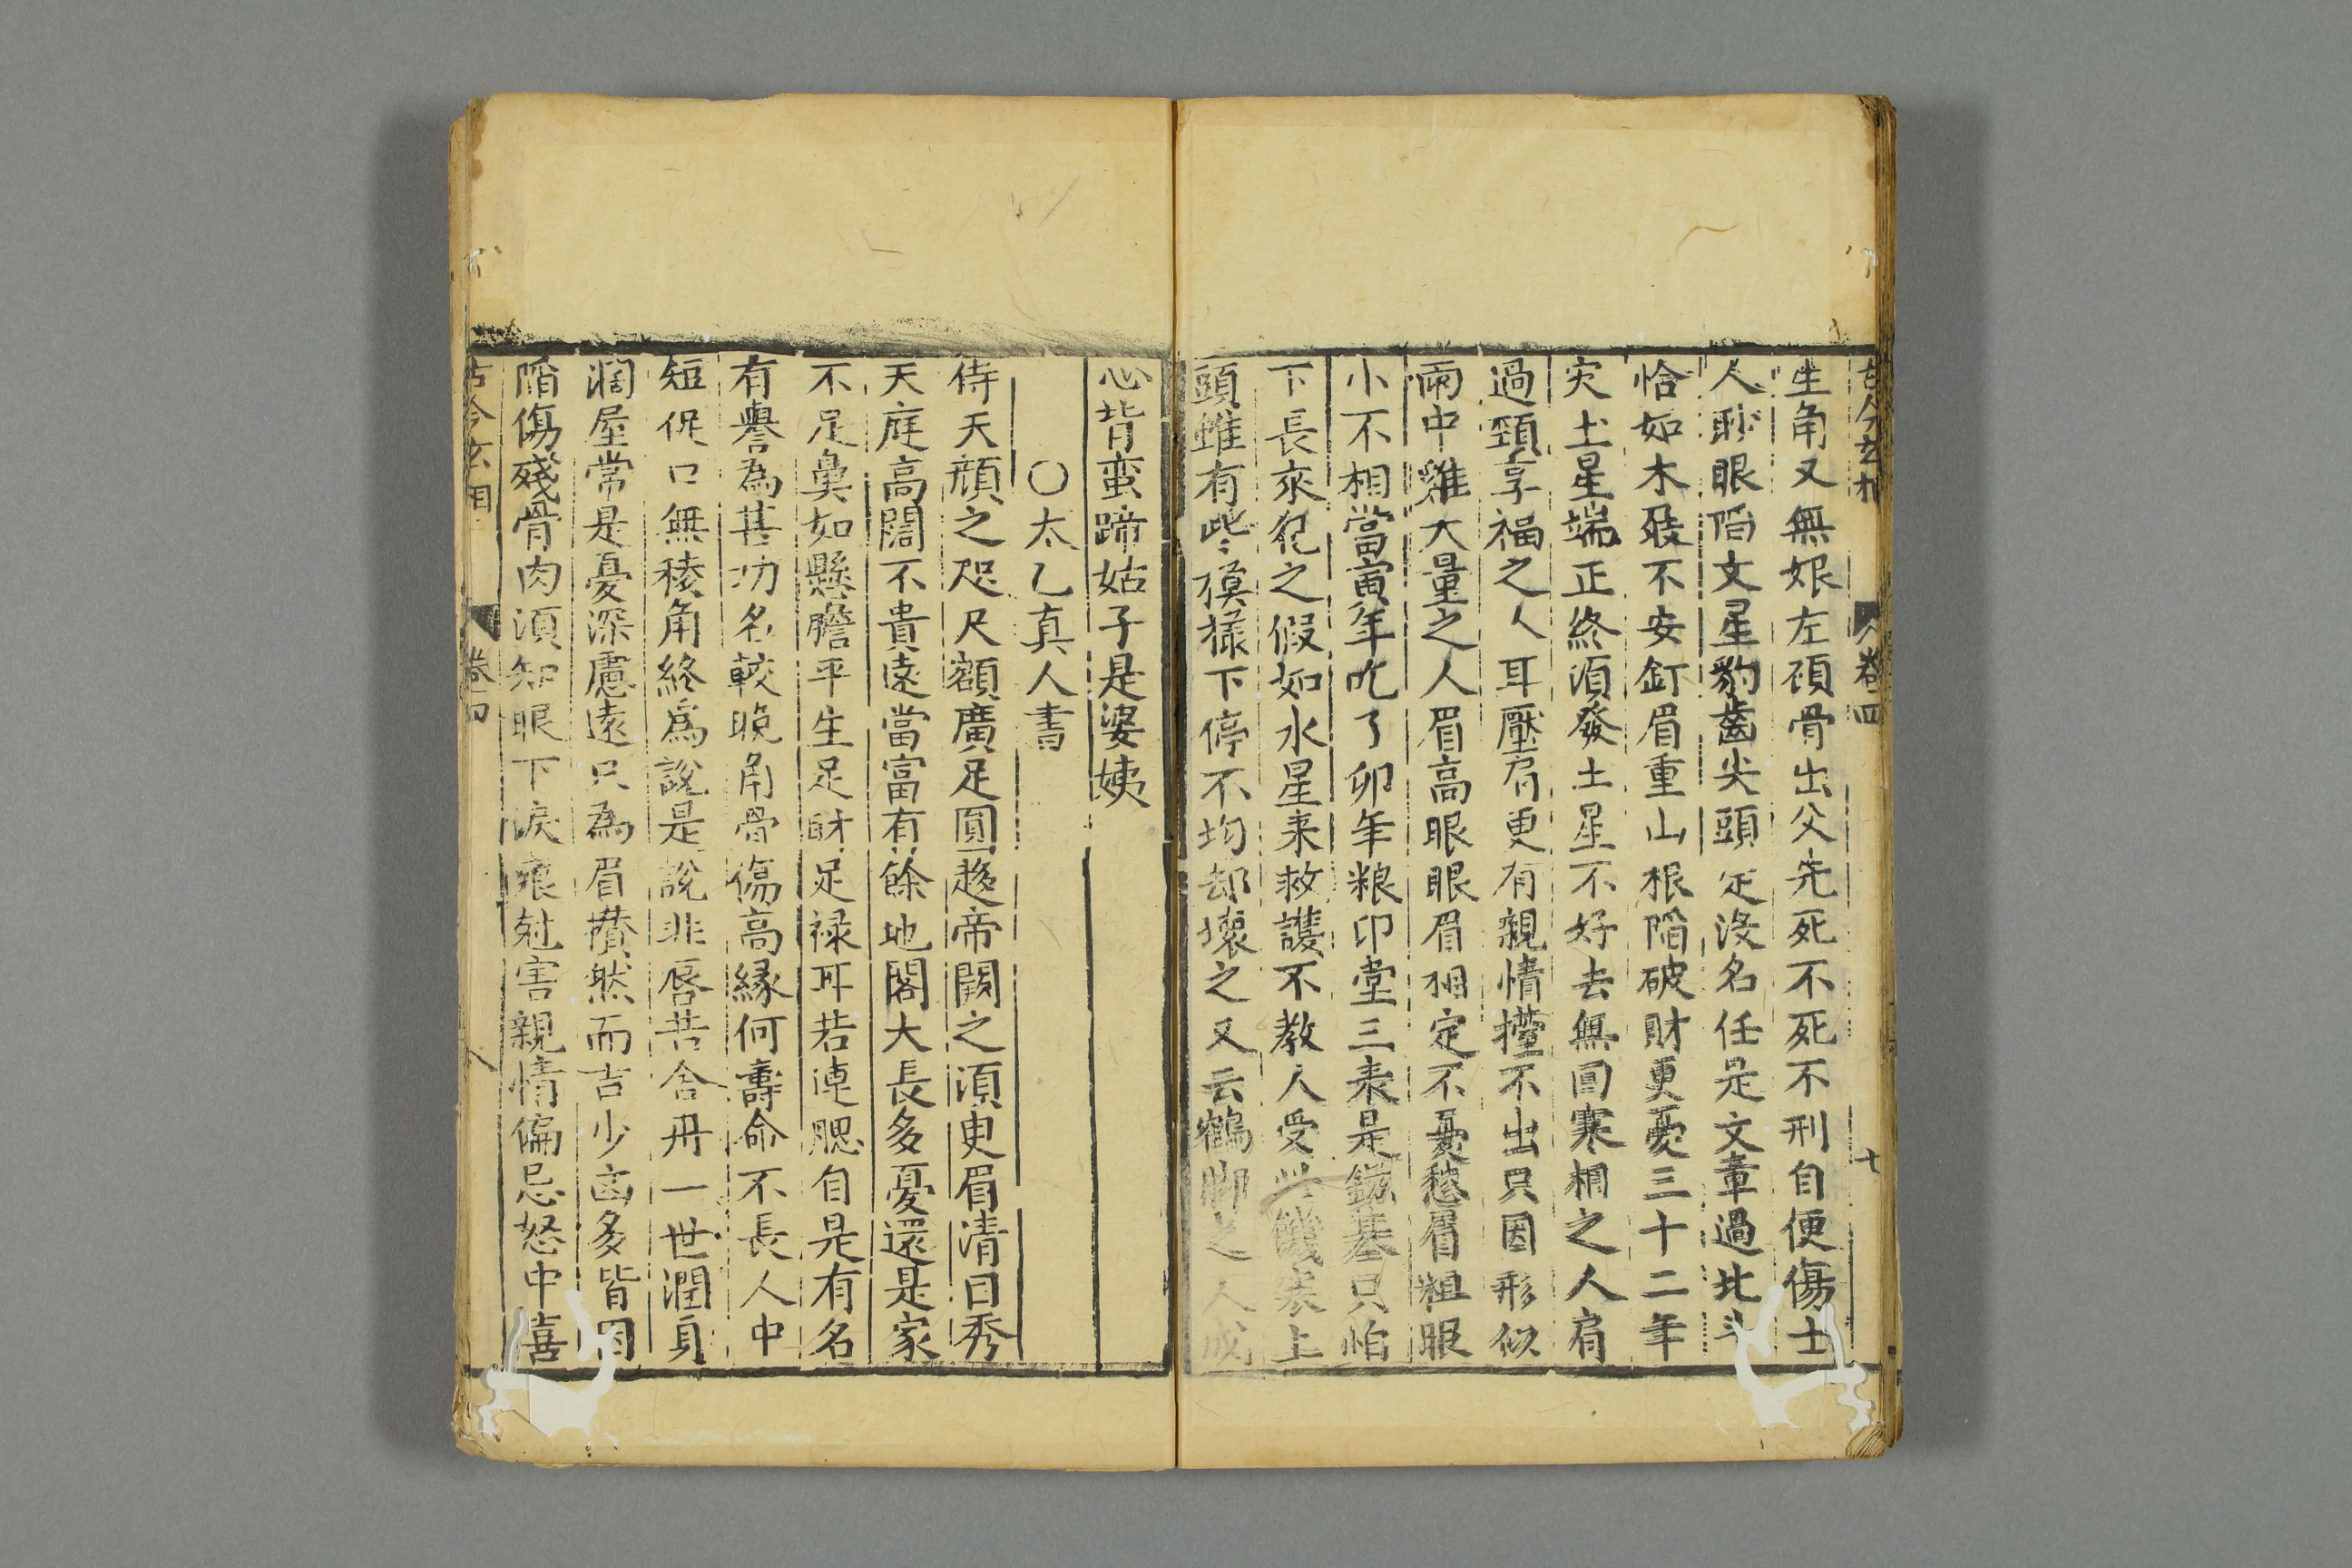 古今玄相 卷四 十
生角又無娘左顴骨出父先死不死不刑自便傷士
人聁眼陷文星豹齒尖頭定没名任是文章過北斗
恰如木殺不安釘眉重山根陷破財更憂三十二年
灾土星端正終須發土星不好去無回寒相之人肩
過頸享福之人耳壓肩更有親情擡不出只因形似
雨中雞大量之人眉高眼眼眉相定不憂愁眉粗眼
小不相當寅年吃了卯年粮印堂三表是鎡基只怕
下長來犯之假如水星来救護不教人受些饑寒上
頭雖有些模樣下停不均却壞之又云鶴脚之人成
心背蛮蹄姑子是婆姨
○太乙真人書
侍天顔之咫尺額廣足圓趍帝闕之須更眉清目秀
天庭高闊不貴遠當富有餘地閣大長多憂還是家
不足鼻如懸膽平生足財足禄耳若連腮自是有名
有譽為甚功名較晚角骨傷高緣何壽命不長人中
短促口無稜角終爲說是說非唇若含丹一世潤身
潤屋常是憂深慮遠只為眉攅然而吉少凶多皆因
陷傷殘骨肉須知眼下淚痕尅害親情偏忌怒中喜
古今玄相 卷四 八